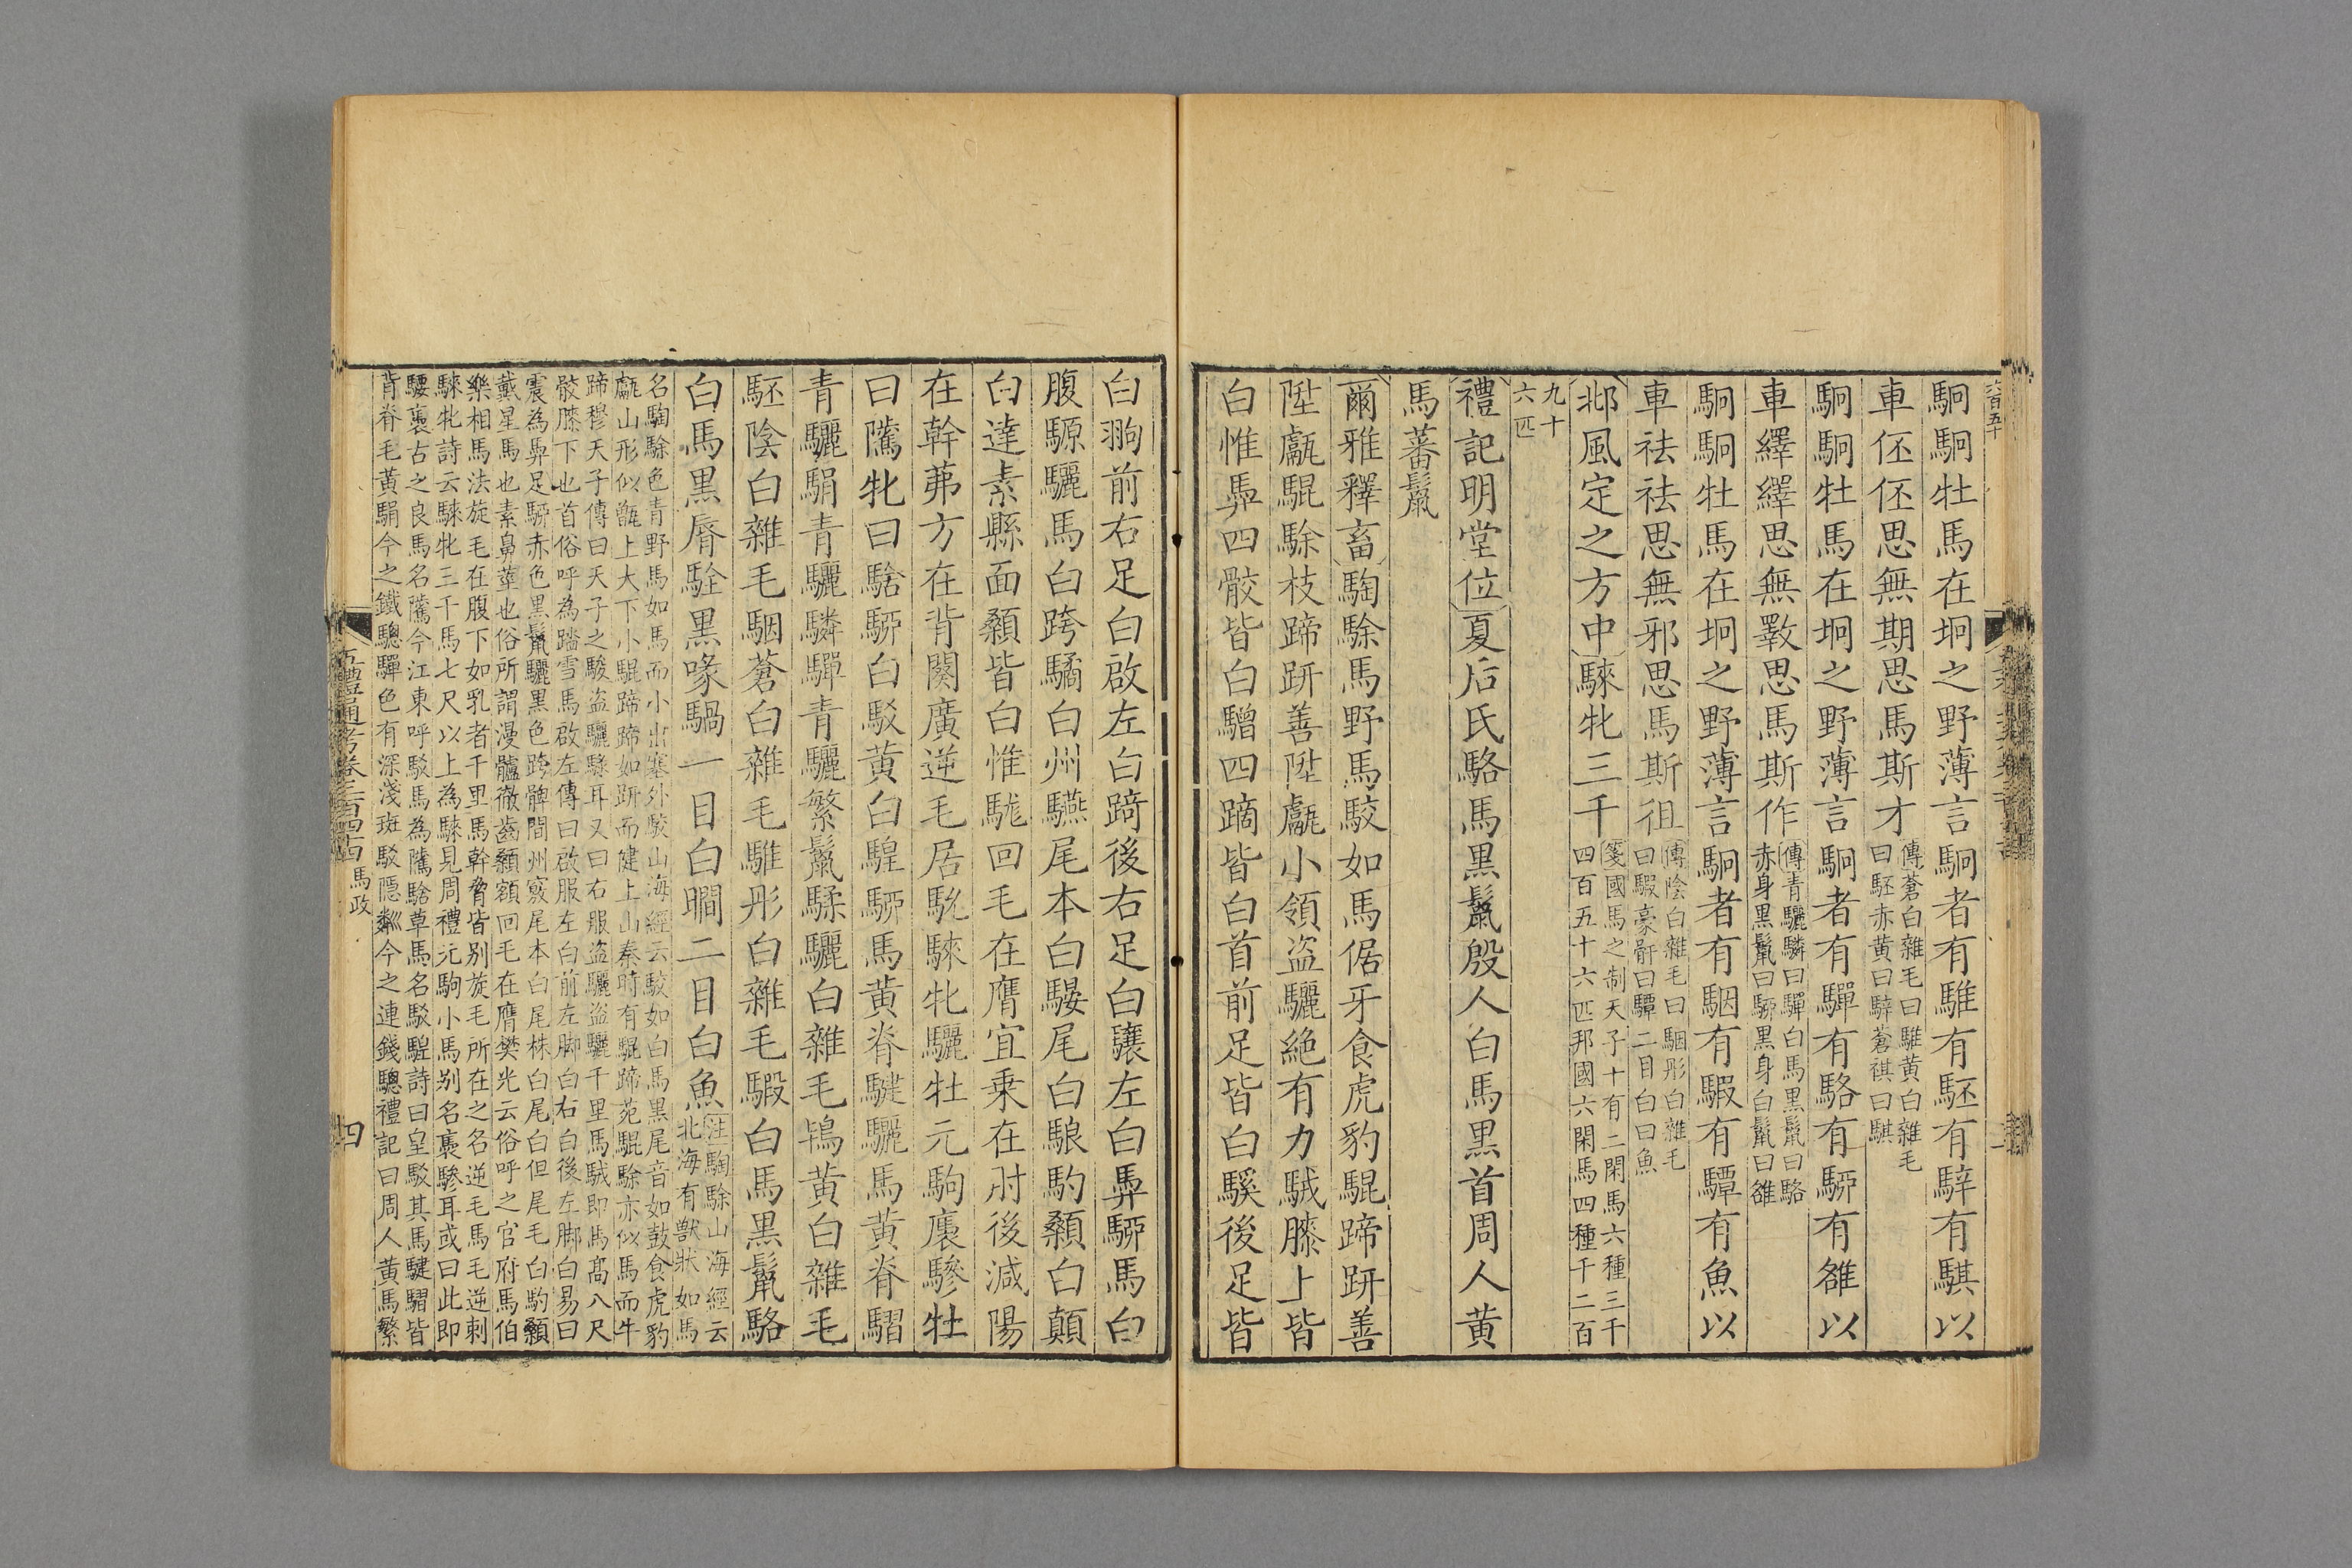 駉駉牡馬在坰之野薄言駉者有騅有駓有騂有騏以
車伾伾思無期思馬斯才傳蒼白雜毛曰騅黃白雜毛
曰駓赤黃曰騂蒼祺曰騏
駉駉牡馬在坰之野薄言駉者有驒有駱有駵有雒以
車繹繹思無斁思馬斯作傳青驪驎曰驒白馬黑鬛曰駱
赤身黑鬛曰駵黑身白鬛曰雒
駉駉牡馬在坰之野薄言駉者有駰有騢有驔有魚以
車祛祛思無邪思馬斯徂傳陰白雜毛曰駰彤白雜毛
曰騢豪骭曰驔二目白曰魚
邶風定之方中騋牝三千箋國馬之制天子十有二閑馬六種三千
四百五十六匹邦國六閑馬四種千二百
九十
六匹
禮記明堂位夏后氏駱馬黑鬛殷人白馬黑首周人黃
馬蕃鬛
爾雅釋畜騊駼馬野馬駮如馬倨牙食虎豹騉蹄趼善
陞甗騉駼枝蹄趼善陞甗小領盜驪絕有力駥膝上皆
白惟馵四骹皆白驓四蹢皆白首前足皆白騱後足皆
白翑前右足白啟左白踦後右足白驤左白馵駵馬白
腹騵驪馬白跨驈白州驠尾本白騴尾白駺馰顙白顛
白達素縣面顙皆白惟駹回毛在膺宜乗在肘後減陽
在幹茀方在背闋廣逆毛居馻騋牝驪牡元駒褭驂牡
曰騭牝曰騇駵白駁黃白騜駵馬黃脊騝驪馬黃脊騽
青驪駽青驪驎驒青驪繁鬛騥驪白雜毛鴇黃白雜毛
駓陰白雜毛駰蒼白雜毛騅彤白雜毛騢白馬黑鬛駱
白馬黑脣駩黑喙騧一目白瞷二目白魚注騊駼山海經云
北海有獸狀如馬
名騊駼色青野馬如馬而小出塞外駮山海經云駮如白馬黑尾音如鼓食虎豹
甗山形似甑上大下小騉蹄蹄如趼而健上山秦時有騉蹄苑騉駼亦似馬而牛
蹄穆天子傳曰天子之駿盜驪騄耳又曰右服盜驪盜驪千里馬駥即馬高八尺
骹膝下也首俗呼為踏雪馬啟左傳曰啟服左白前左脚白右白後左脚白易曰
震為馵足駵赤色黑鬛驪黑色跨髀間州竅尾本白尾株白尾白但尾毛白馰顙
戴星馬也素鼻莖也俗所謂漫髗徹齒顙額回毛在膺樊光云俗呼之官府馬伯
樂相馬法旋毛在腹下如乳者千里馬幹脅皆別旋毛所在之名逆毛馬毛逆刺
騋牝詩云騋牝三千馬七尺以上為騋見周禮元駒小馬別名褭驂耳或曰此即
騕褭古之良馬名騭今江東呼駁馬為騭騇草馬名駁騜詩曰皇駁其馬騝騽皆
背脊毛黃駽今之鐵驄驒色有深淺斑駁隱粼今之連錢驄禮記曰周人黃馬繁
五禮通考卷二百四十四 馬政
四